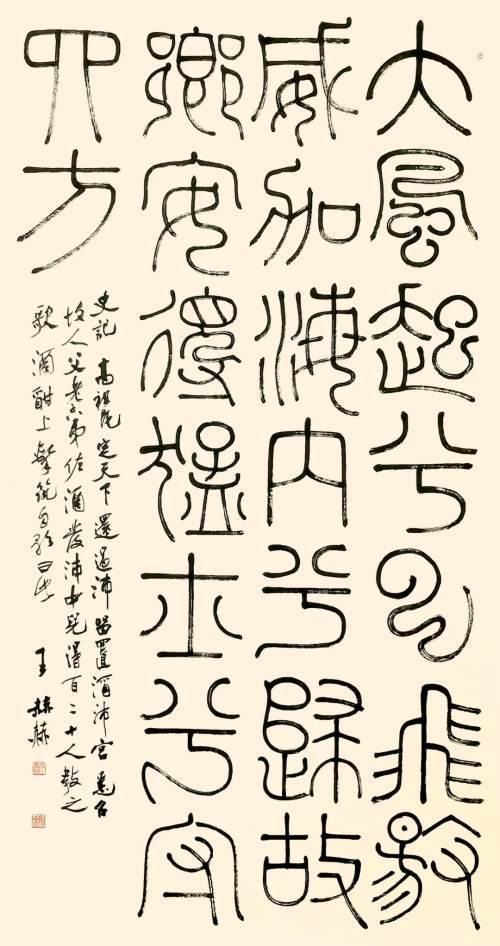 大風起兮云飛揚
威加海内兮歸故
鄉安得猛士兮守
四方
史記 高祖既定天下還過沛留置酒沛宫悉召
故人父老子弟佐酒發沛中兒得百二十人教之
歌酒酣上擊筑自歌曰 王赫赫